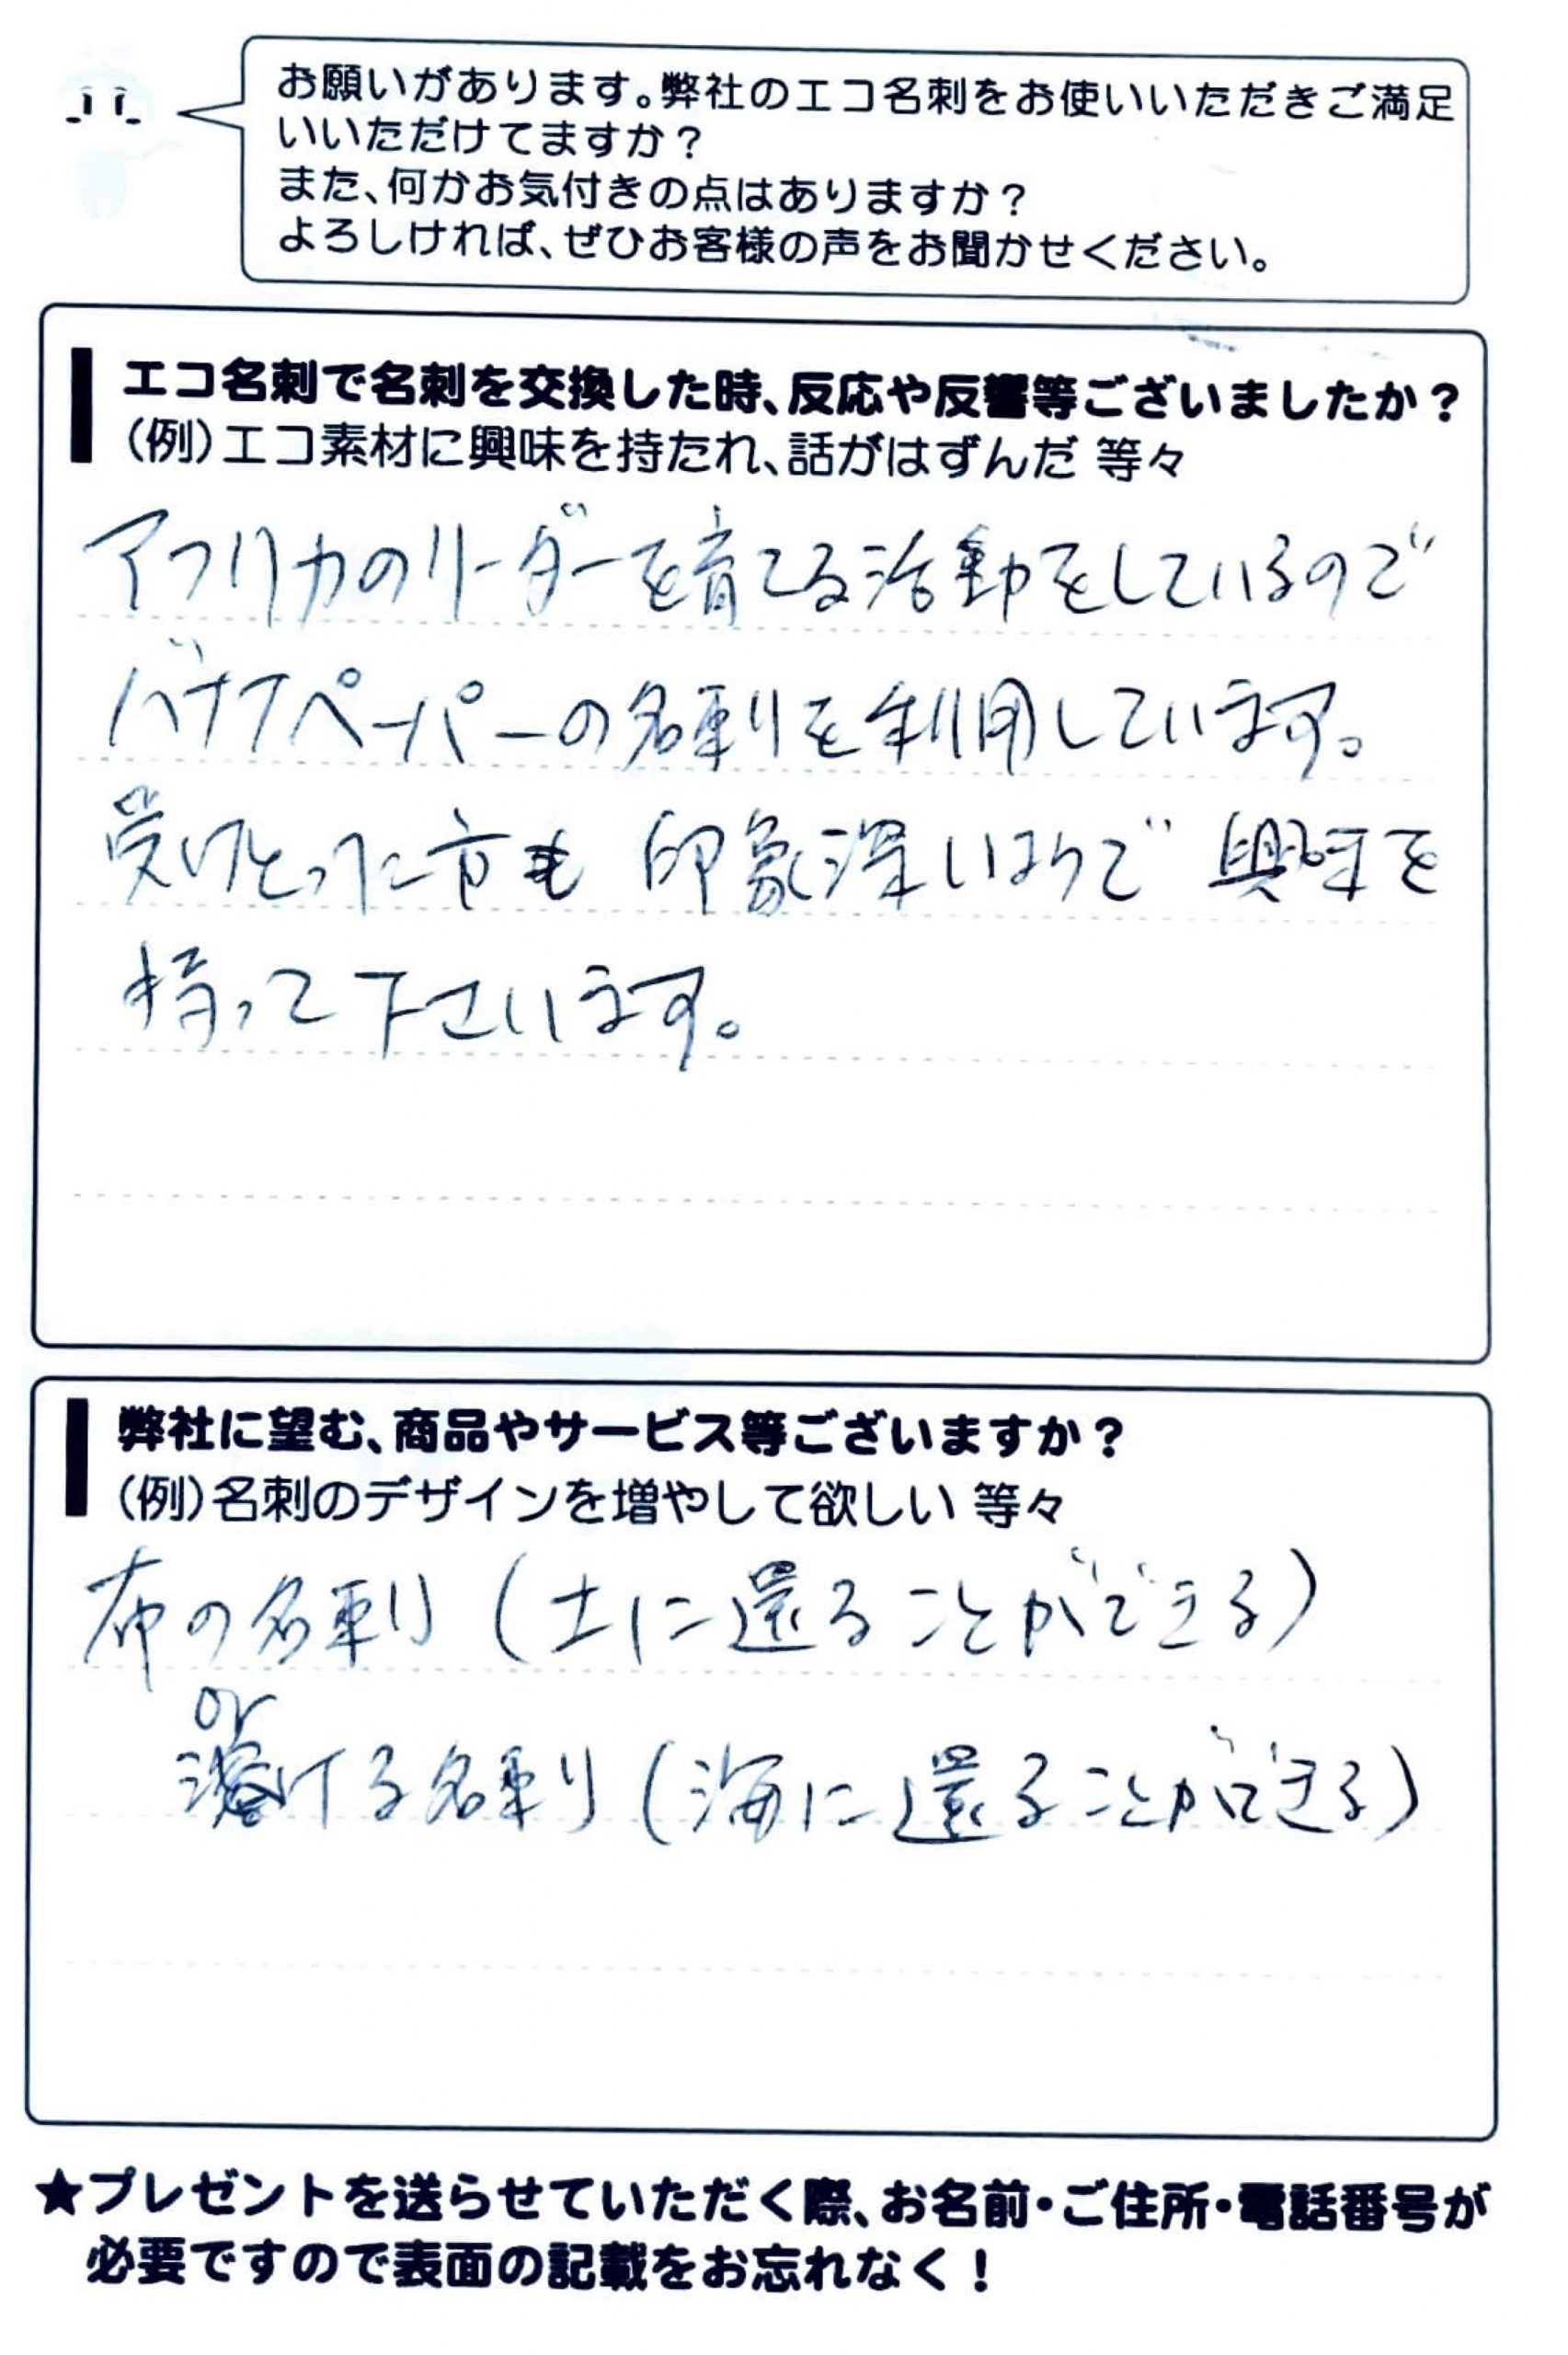 お願いがあります。弊社のエコ名刺をお使いいただきご満足
いいただけてますか？
また、何かお気付きの点はありますか？
よろしければ、ぜひお客様の声をお聞かせください。
エコ名刺で名刺を交換した時、反応や反響等ございましたか？
（例）エコ素材に興味を持たれ、話がはずんだ 等々
アフリカのリーダーを育てる活動をしているので
バナナペーパーの名刺を利用しています。
受けとった方も 印象深いようで 興味を
持って下さいます。
弊社に望む、商品やサービス等ございますか？
（例）名刺のデザインを増やして欲しい 等々
布の名刺（土に還ることができる）
or
溶ける名刺（海に還ることができる）
★プレゼントを送らせていただく際、お名前・ご住所・電話番号が
必要ですので表面の記載をお忘れなく！